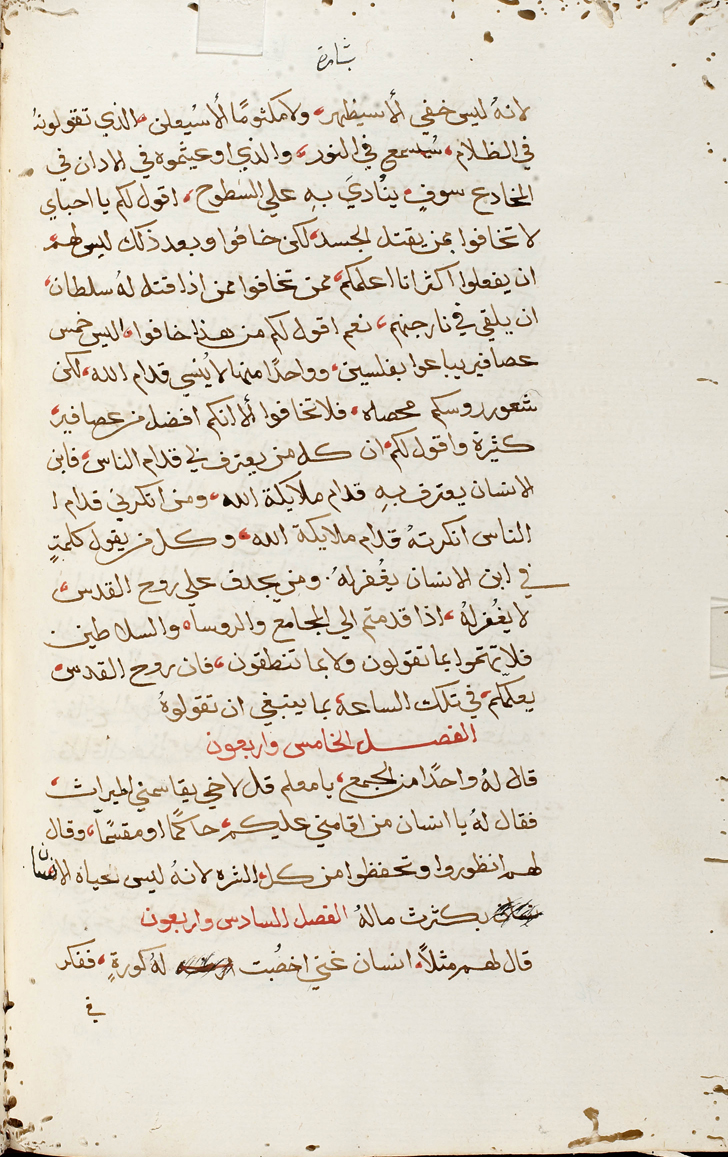 بشارة
لانهُ ليس خفي ألا سيظهر، ولا مكتومًا ألا سيعلن، الذي تقولونهُ
في الظلام، سيسمع في النور، والذي اوعيتموه في الادان في
المخادع سوف ينُاديَ به علي السطوح، اقول لكم يا احباي
لا تخافوا ممن يقتل الجسد، لكن خافوا وبعد ذكك ليس لهم
ان يفعلوا اكثر انا اعلمكم، ممن تخافوا ممن اذا قتل لهُ سلطان،
ان يلقي في نار جهنم، نعم اقول لكم من هذا خافوا، اليس خمس
عصافير يباعوا بفلسين، وواحدًا منها لا يُنسي قدام الله، لكن
شعور روسكم محصاه، فلا تخافوا ألا انكم افضل من عصافير،
كثيرة واقول لكم، ان كل من يعترف في قدام الناس، فابن
الانسان يعترف بهِ قدام ملايكة الله، ومن انكرني قدام ا
الناس انكرتهُ قدام ملايكة الله، وكل من يقول كلمةٍ
في ابن الانسان يغُفر لهُ. ومن يجدف علي روح القدس،
لا يغُفر لهُ، اذا قدمتم الي المجامع والروساه والسلاطين
فلا تهتموا بما تقولون ولا بما تنطقون، فان روح القدس،
يعلمكم، في تلك الساعة، بما ينبغي ان تقولوهُ
الفصل الخامس واربعون
قال لهُ واحدًا من الجمع، يا معلم قل لاخي يقاسمني الميراث،
فقال لهُ يا انسان من اقامني عليكم، حاكمًا او مقسمًا، وقال
لهم انظوروا وتحفظوا من كل الشره لانهُ ليس بحياة الانسان
بكثرث مالهُ الفصل السادس واربعون
قال لهم مثلاً، انسان غني اخصُبت لهُ كورةٍ، ففكر
في